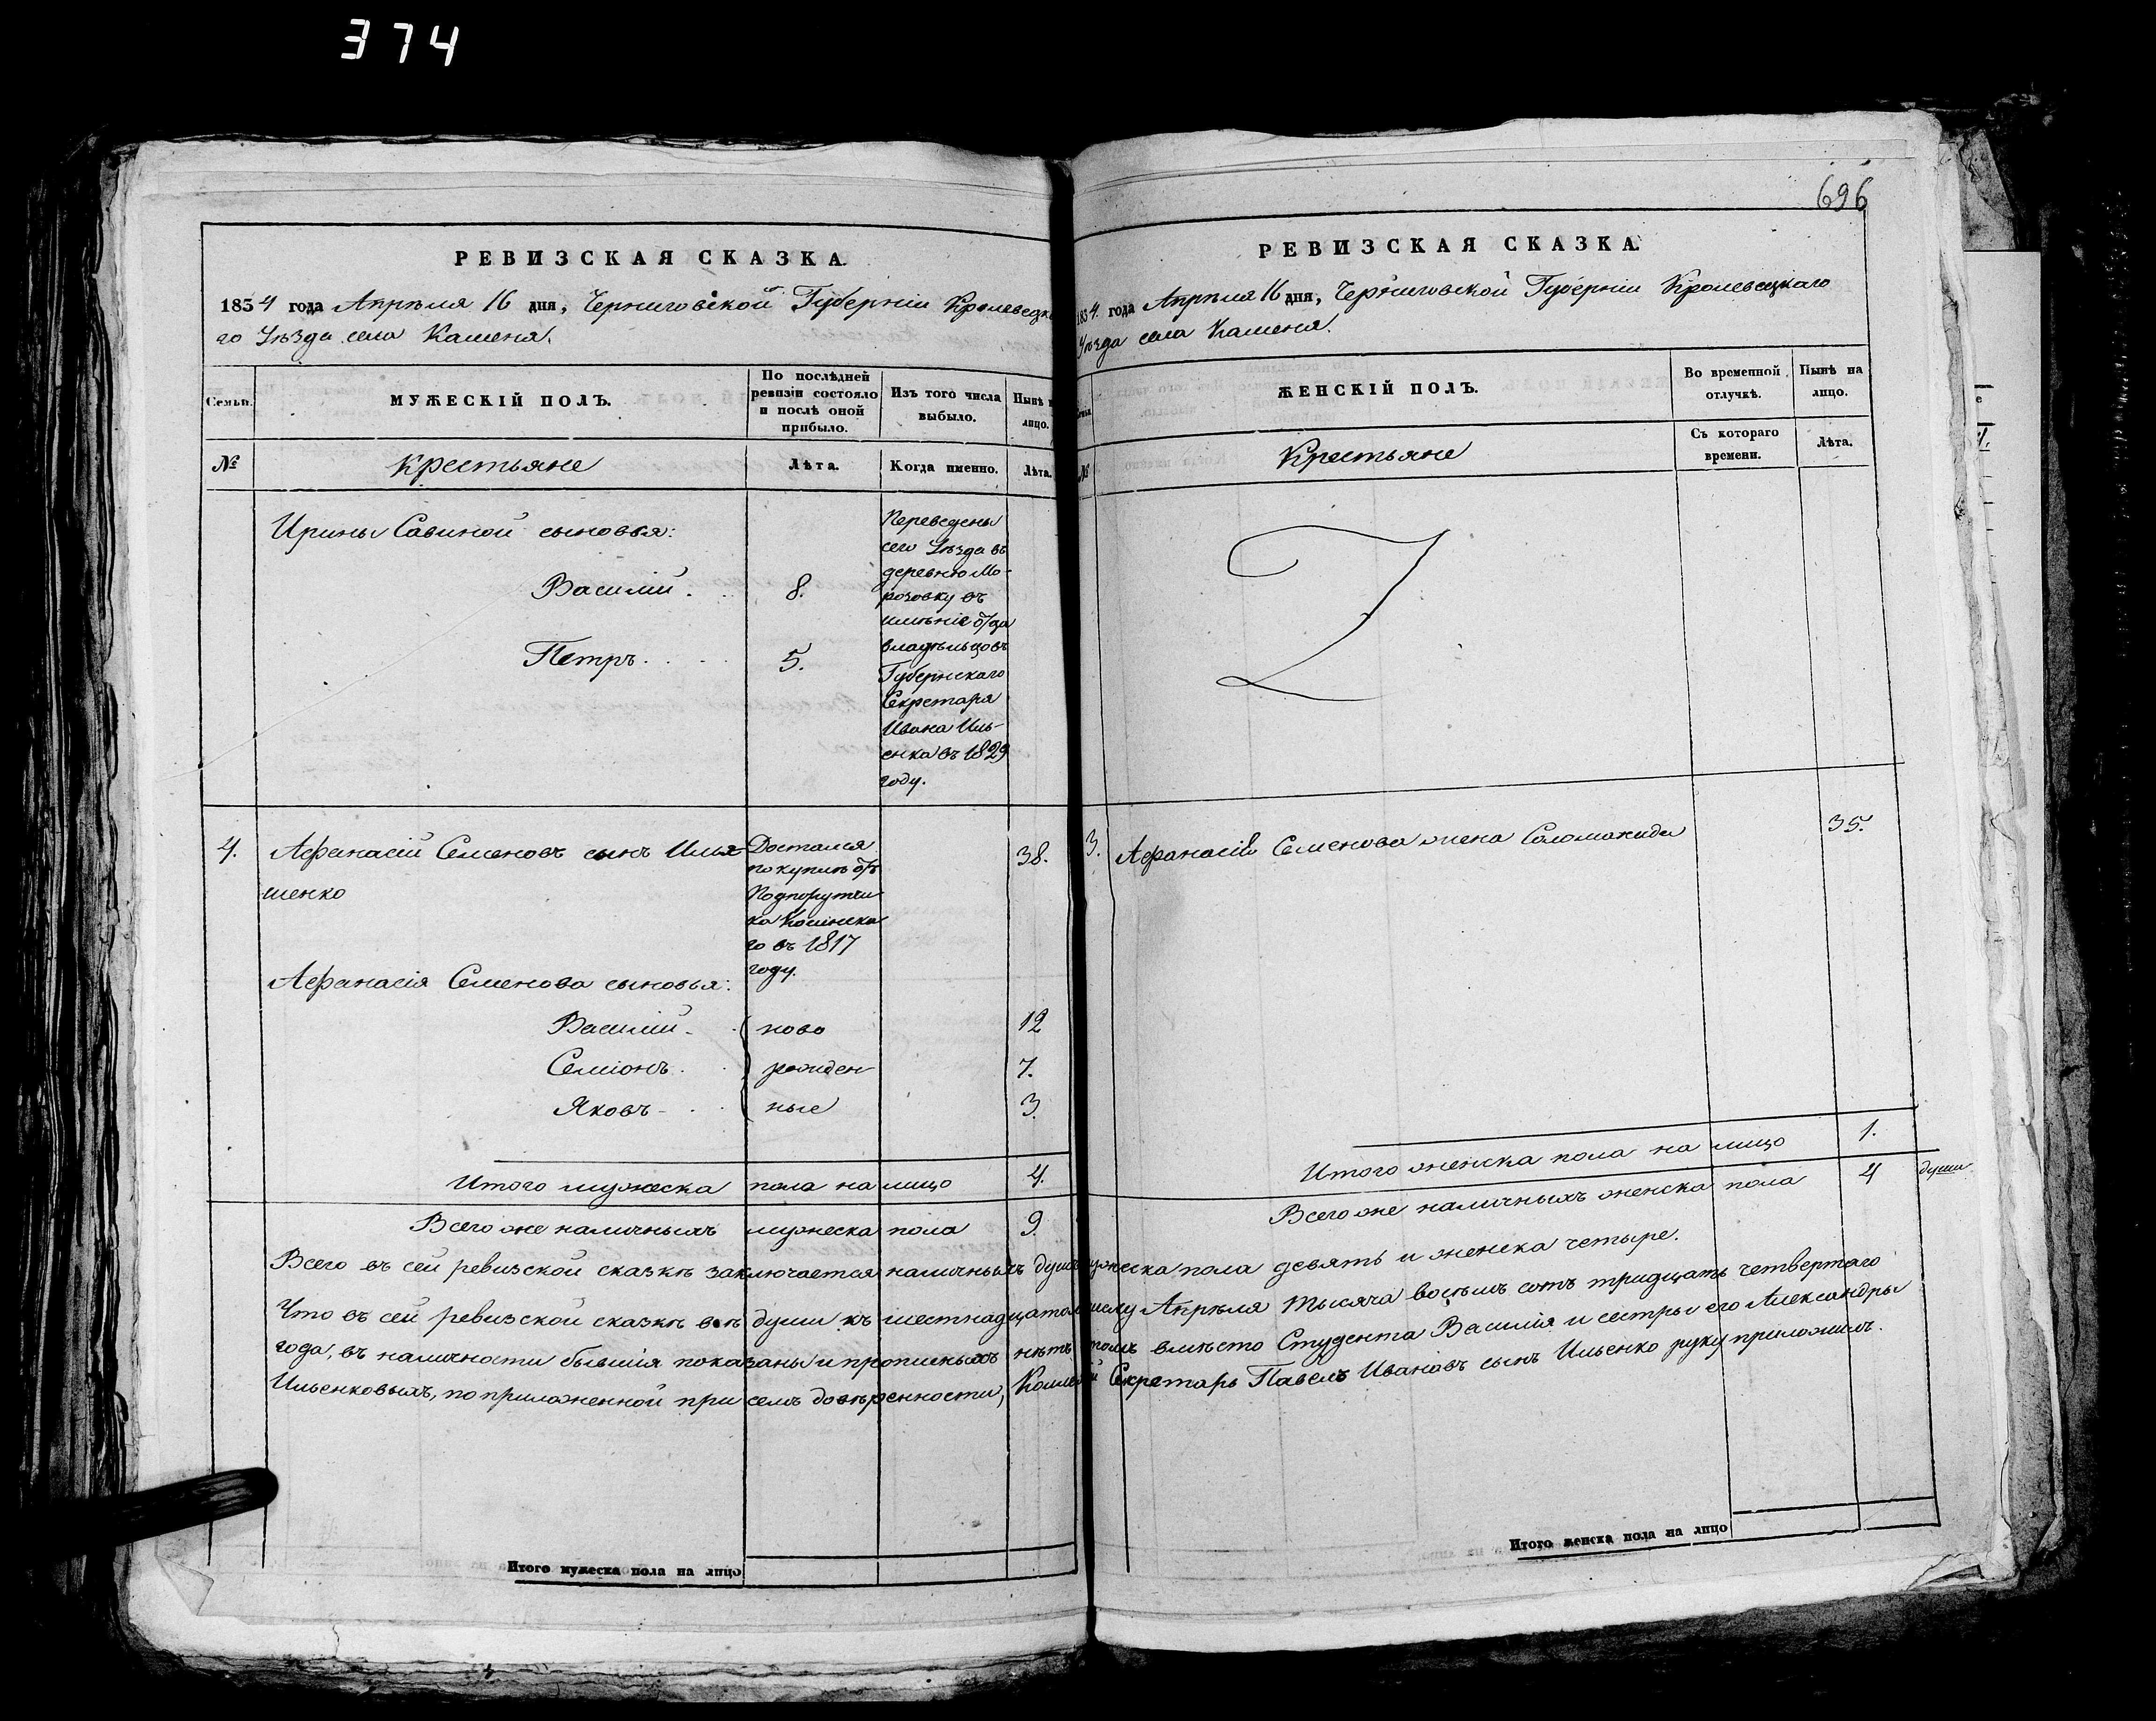 374
696
РЕВИЗСКАЯ СКАЗКА.
1834 года Апрѣля 16 дня, Черниговской Губерніи Кролевецка
го Уѣзда села Каменя.
Семьи.
МУЖЕСКІЙ ПОЛЪ.
По послѣдней
ревизіи состояло
и послѣ оной
прибыло.
Изъ того числа
выбыло.
Нынѣ н
лицо.
№
Крестьяне
Лѣта.
Когда именно.
Лѣта.
Ирины Савиной сыновья:
Василій . . 8.
Петръ . . . . 5.
Переведены
сего Уѣзда въ
деревню Мо-
розовку въ
имѣніе
владѣльцовъ
Губернскаго
Секретаря
Ивана Иль-
енка въ 1829
году.
4. Афанасій Семеновъ сынъ Илья- 38.
шенко
Достался
по куплѣ отъ
Подпорутчи
ка
го въ 1817
году.
Афанасія Семенова сыновья:
Василій - . ново 12
Семіонъ . . рожден 7.
Яковъ - . . ные 3.
Итого мужеска пола на лицо 4.
Всего же наличныхъ мужеска пола 9.
РЕВИЗСКАЯ СКАЗКА.
1834. года Апрѣля 16 дня, Черниговской Губерніи Кролевецкаго
Уѣзда села Каменя.
ЖЕНСКІЙ ПОЛЪ.
Во временной
отлучкѣ.
Нынѣ на
лицо.
№
Крестьяне
Съ котораго
времени.
Лѣта.
3. Афанасія Семенова жена Соломанида 35.
Итого женска пола на лицо 1.
Всего же наличныхъ женска пола 4 души
Всего въ сей ревизской сказкѣ заключается наличныхъ душъ мужеска пола девять и женска четыре.
Что въ сей ревизской сказкѣ всѣ души къ шестнадцатому Апрѣля тысяча восѣмъ сотъ тридцать четвертаго
года, въ наличности бывшія показаны и прописныхъ нѣтъ въ томъ вмѣсто Студента Василія и сестры его Александры
Ильенковыхъ, по приложенной при семъ довѣренности, Секретарь Павелъ Ивановъ сынъ Ильенко руку приложилъ.
Итого мужеска пола на лицо
Итого женска пола на лицо